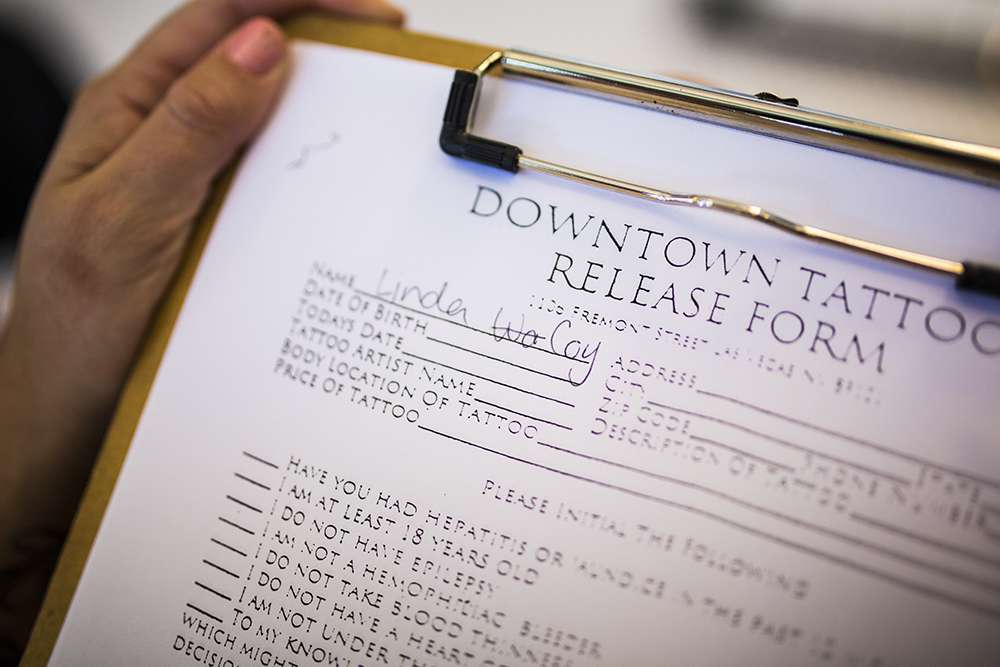 DOWNTOWN TATTOO
RELEASE FORM
FREMONT STREET LAS VEGAS
NAME Linda
DATE OF BIRTH ADDRESS
TODAYS DATE CITY STATE
TATTOO ARTIST NAME ZIP CODE PHONE NUMBER
BODY LOCATION OF TATTOO DESCRIPTION OF TATTOO
PRICE OF TATTOO
PLEASE INITIAL THE FOLLOWING
HAVE YOU HAD HEPATITIS OR JAUNDICE IN THE PAST 12
I AM AT LEAST 18 YEARS OLD
I DO NOT HAVE EPILEPSY
I AM NOT A HEMOPHILIAC BLEEDER
I DO NOT TAKE BLOOD THINNERS
I DO NOT HAVE A HEART
I AM NOT UNDER THE
TO MY KNOWL
WHICH MIGHT
DECISION